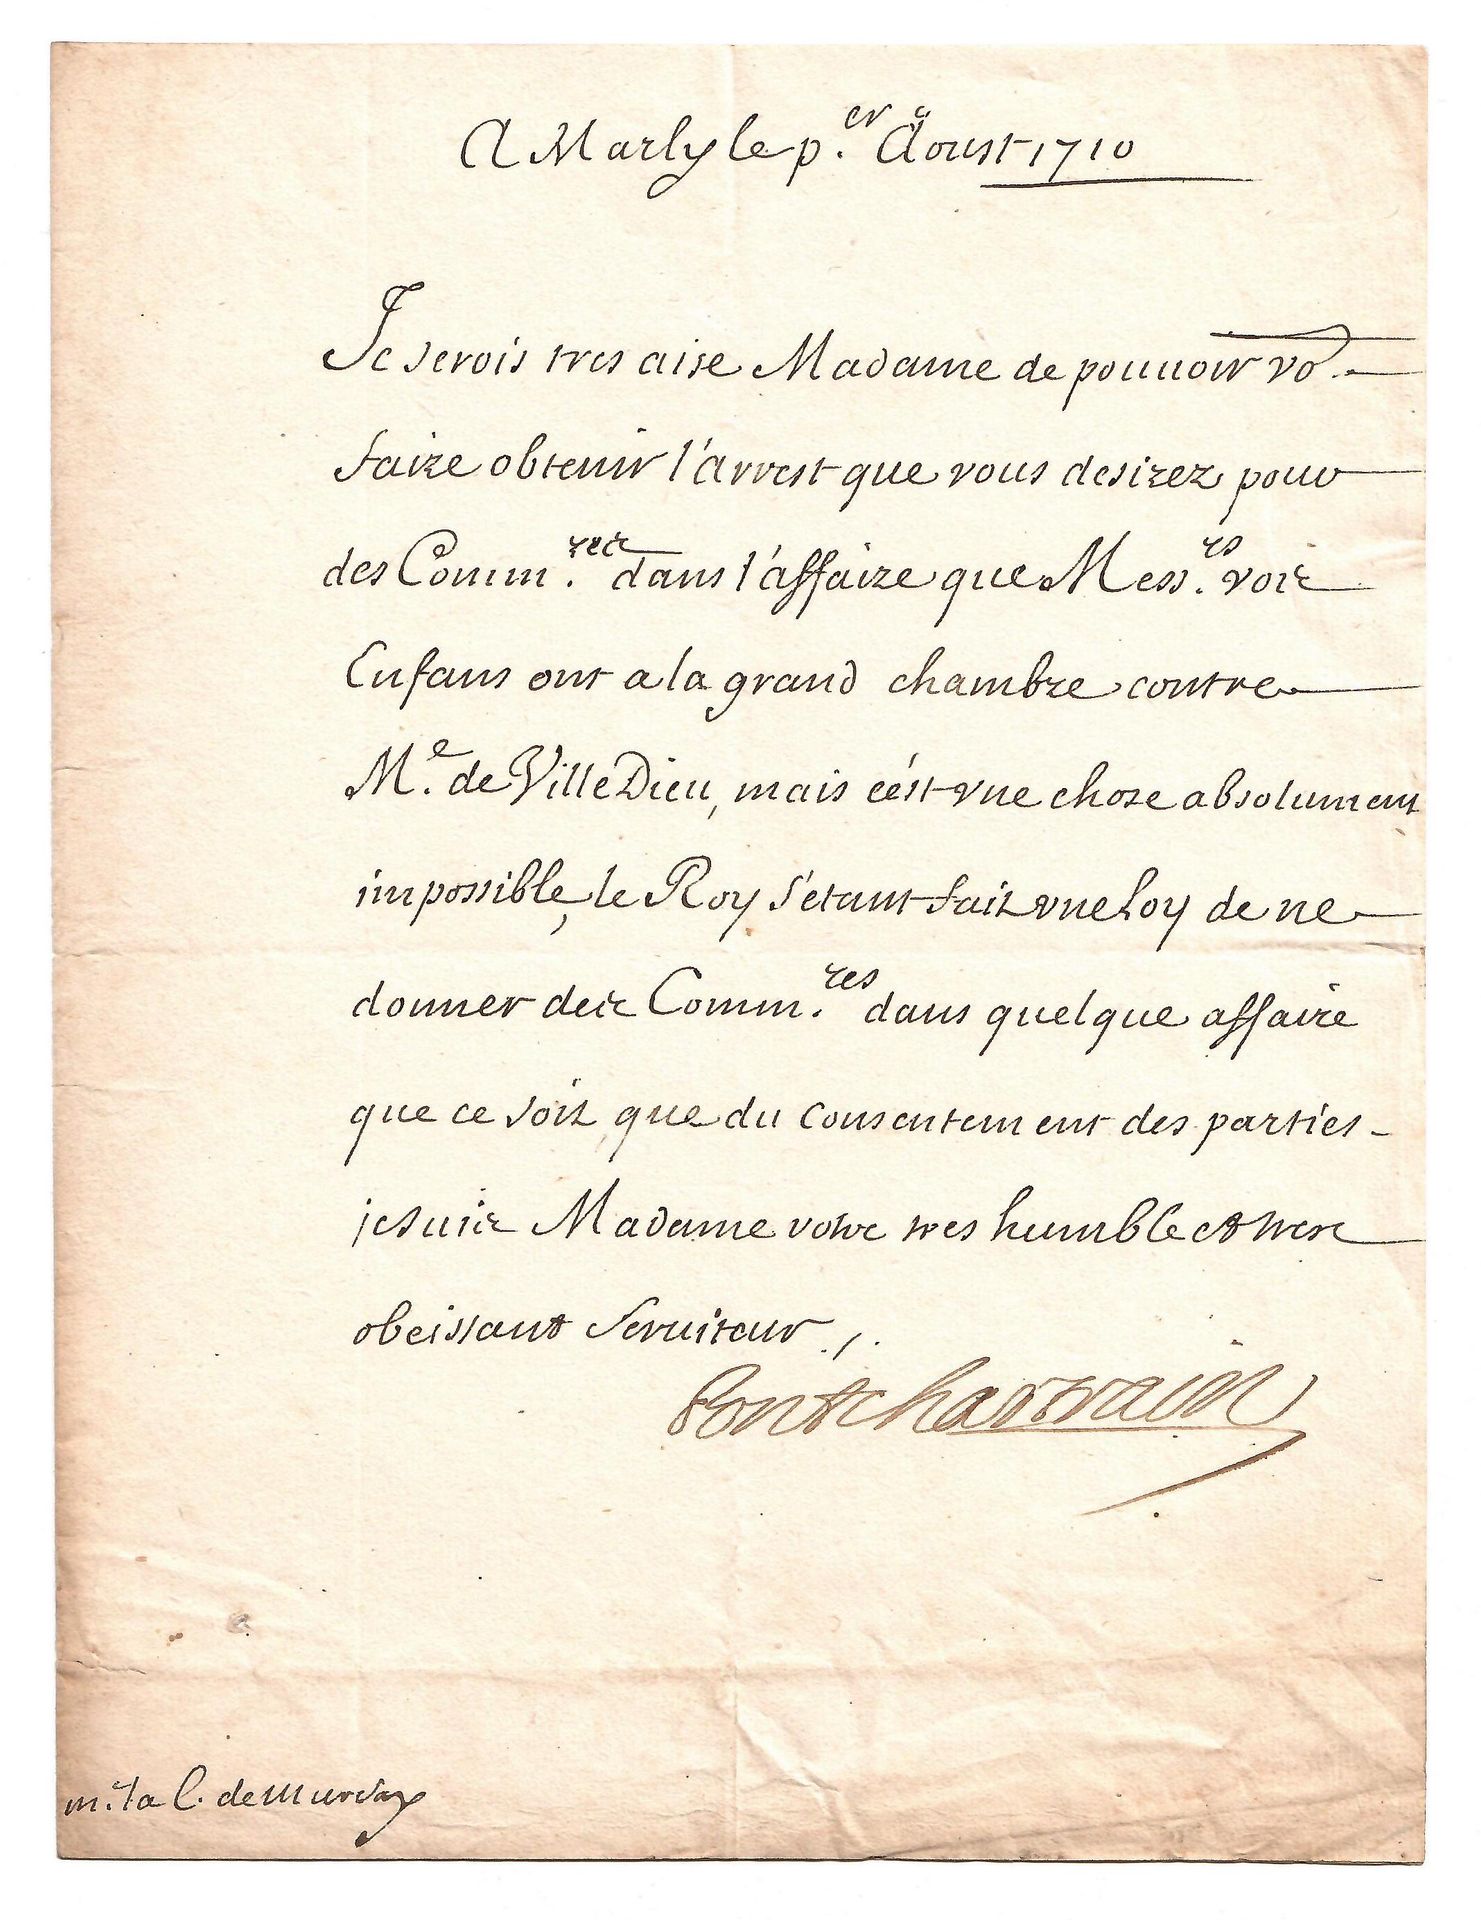 A Marly le p.er Aoust 1710
Je serois tres aise Madame de pouuoir vo.
faire obtenir l'arrest que vous desirez pour
des Comm.res dans l'affaire que Mess.rs vois
Enfans ont a la grand chambre contre
M.e de Ville Dieu, mais c'est vne chose absolument
impossible, le Roy s'etant fait vne Loy de ne
donner des Comm.res dans quelque affaire
que ce soit que du consentement des parties
je suis Madame votre tres humble et tres
obeissant seruiteur ./.
Pontchartrain
m.e la C. de